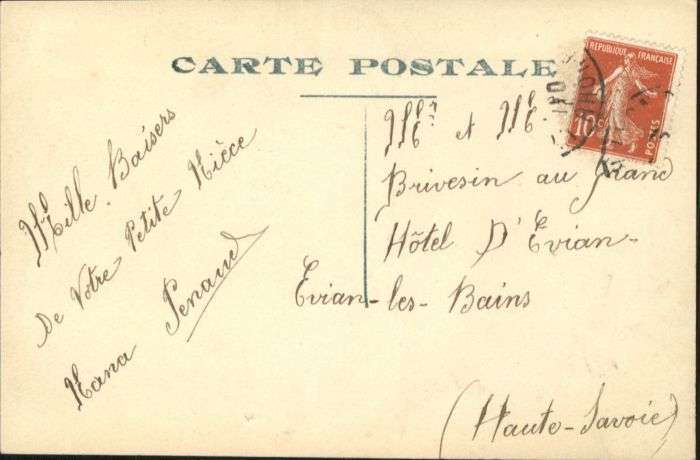 CARTE POSTALE
REPUBLIQUE FRANÇAISE
10 c
POSTES
Mille Baisers
De Votre Petite Nièce
Nana Penaud
Mr et Me
Brivesin au Grand
Hôtel D'Evian-
Evian-les-Bains
(Haute-Savoie)